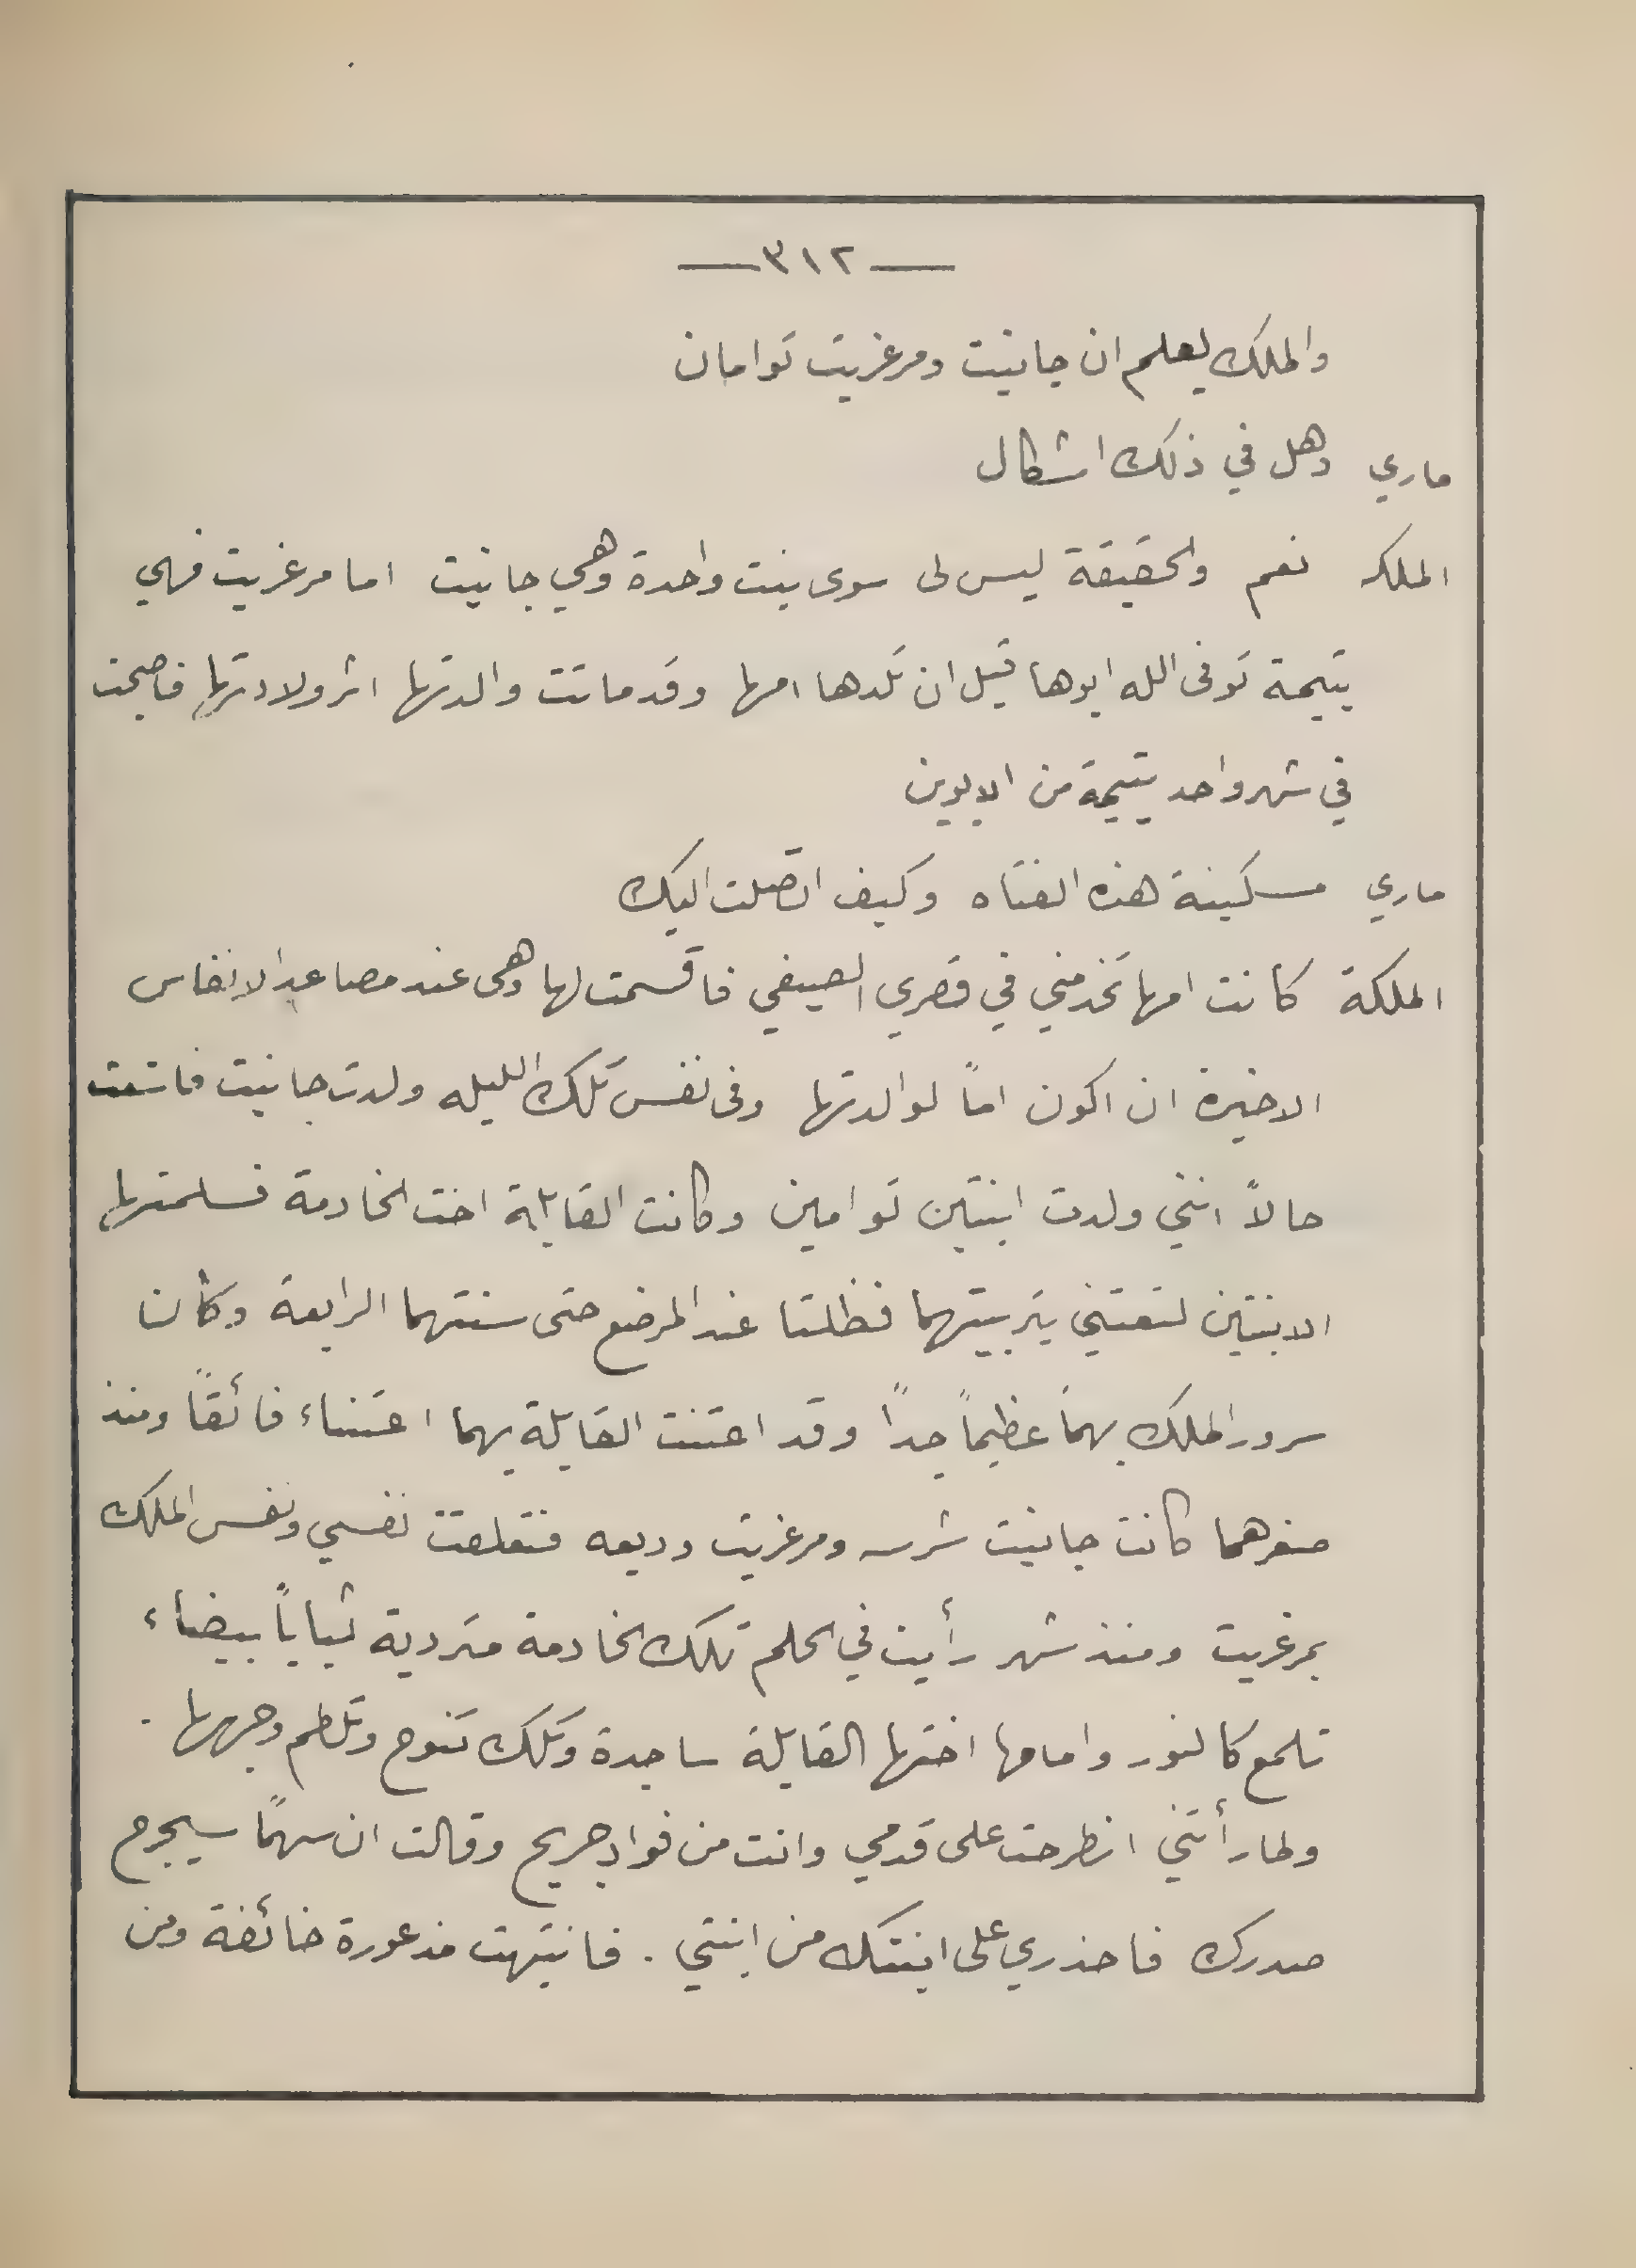 —٣١٢—
والملك يعلم ان جانيت ومرغريت توامان
ماري وهل في ذلك اشكال
الملكه نعم والحقيقة ليس لى سوى بنت واحدة وهي جانيت اما مرغريت فهي
يتيمة توفى الله ابوها قبل ان تلدها امها وقد ماتت والدتها اثر ولادتها فاصبحت
في شهر واحد يتيمة من الابوين
ماري مسكينة هذه الفتاه وكيف اتصلت اليك
الملكة كانت امها تخدمني في قصري الصيفي فاقسمت لها وهى عند مصاعد الانفاس
الاخيرة ان اكون اماً لوالدتها وفى نفس تلك الليله ولدت جانيت فاشعت
حالاً انني ولدت ابنتين توامين وكانت القابلة اخت الخادمة فسلمتها
الابنتين لتعتني بتربيتهما فظلتا عند المرضع حتى سنتهما الرابعة وكان
سرور الملك بهما عظيماً جداً وقد اعتنت القابلة بهما اعتناء فائقاً ومنذ
صغرهما كانت جانيت شرسه ومرغريت وديعه فتعلقت نفسي ونفس الملك
بمرغريت ومنذ شهر رأيت في الحلم تلك الخادمة متردية ثياباً بيضاء
تلمع كالنور وامامها اختها القابلة ساجدة وتلك تنوح وتلطم وجهها .
ولما رأتني انطرحت على قدمي وانت من فواد جريح وقالت ان سهمًا سيجرح
صدرك فاحذري على ابنتك من ابنتي . فانتبهت مذعورة خائفة ومن